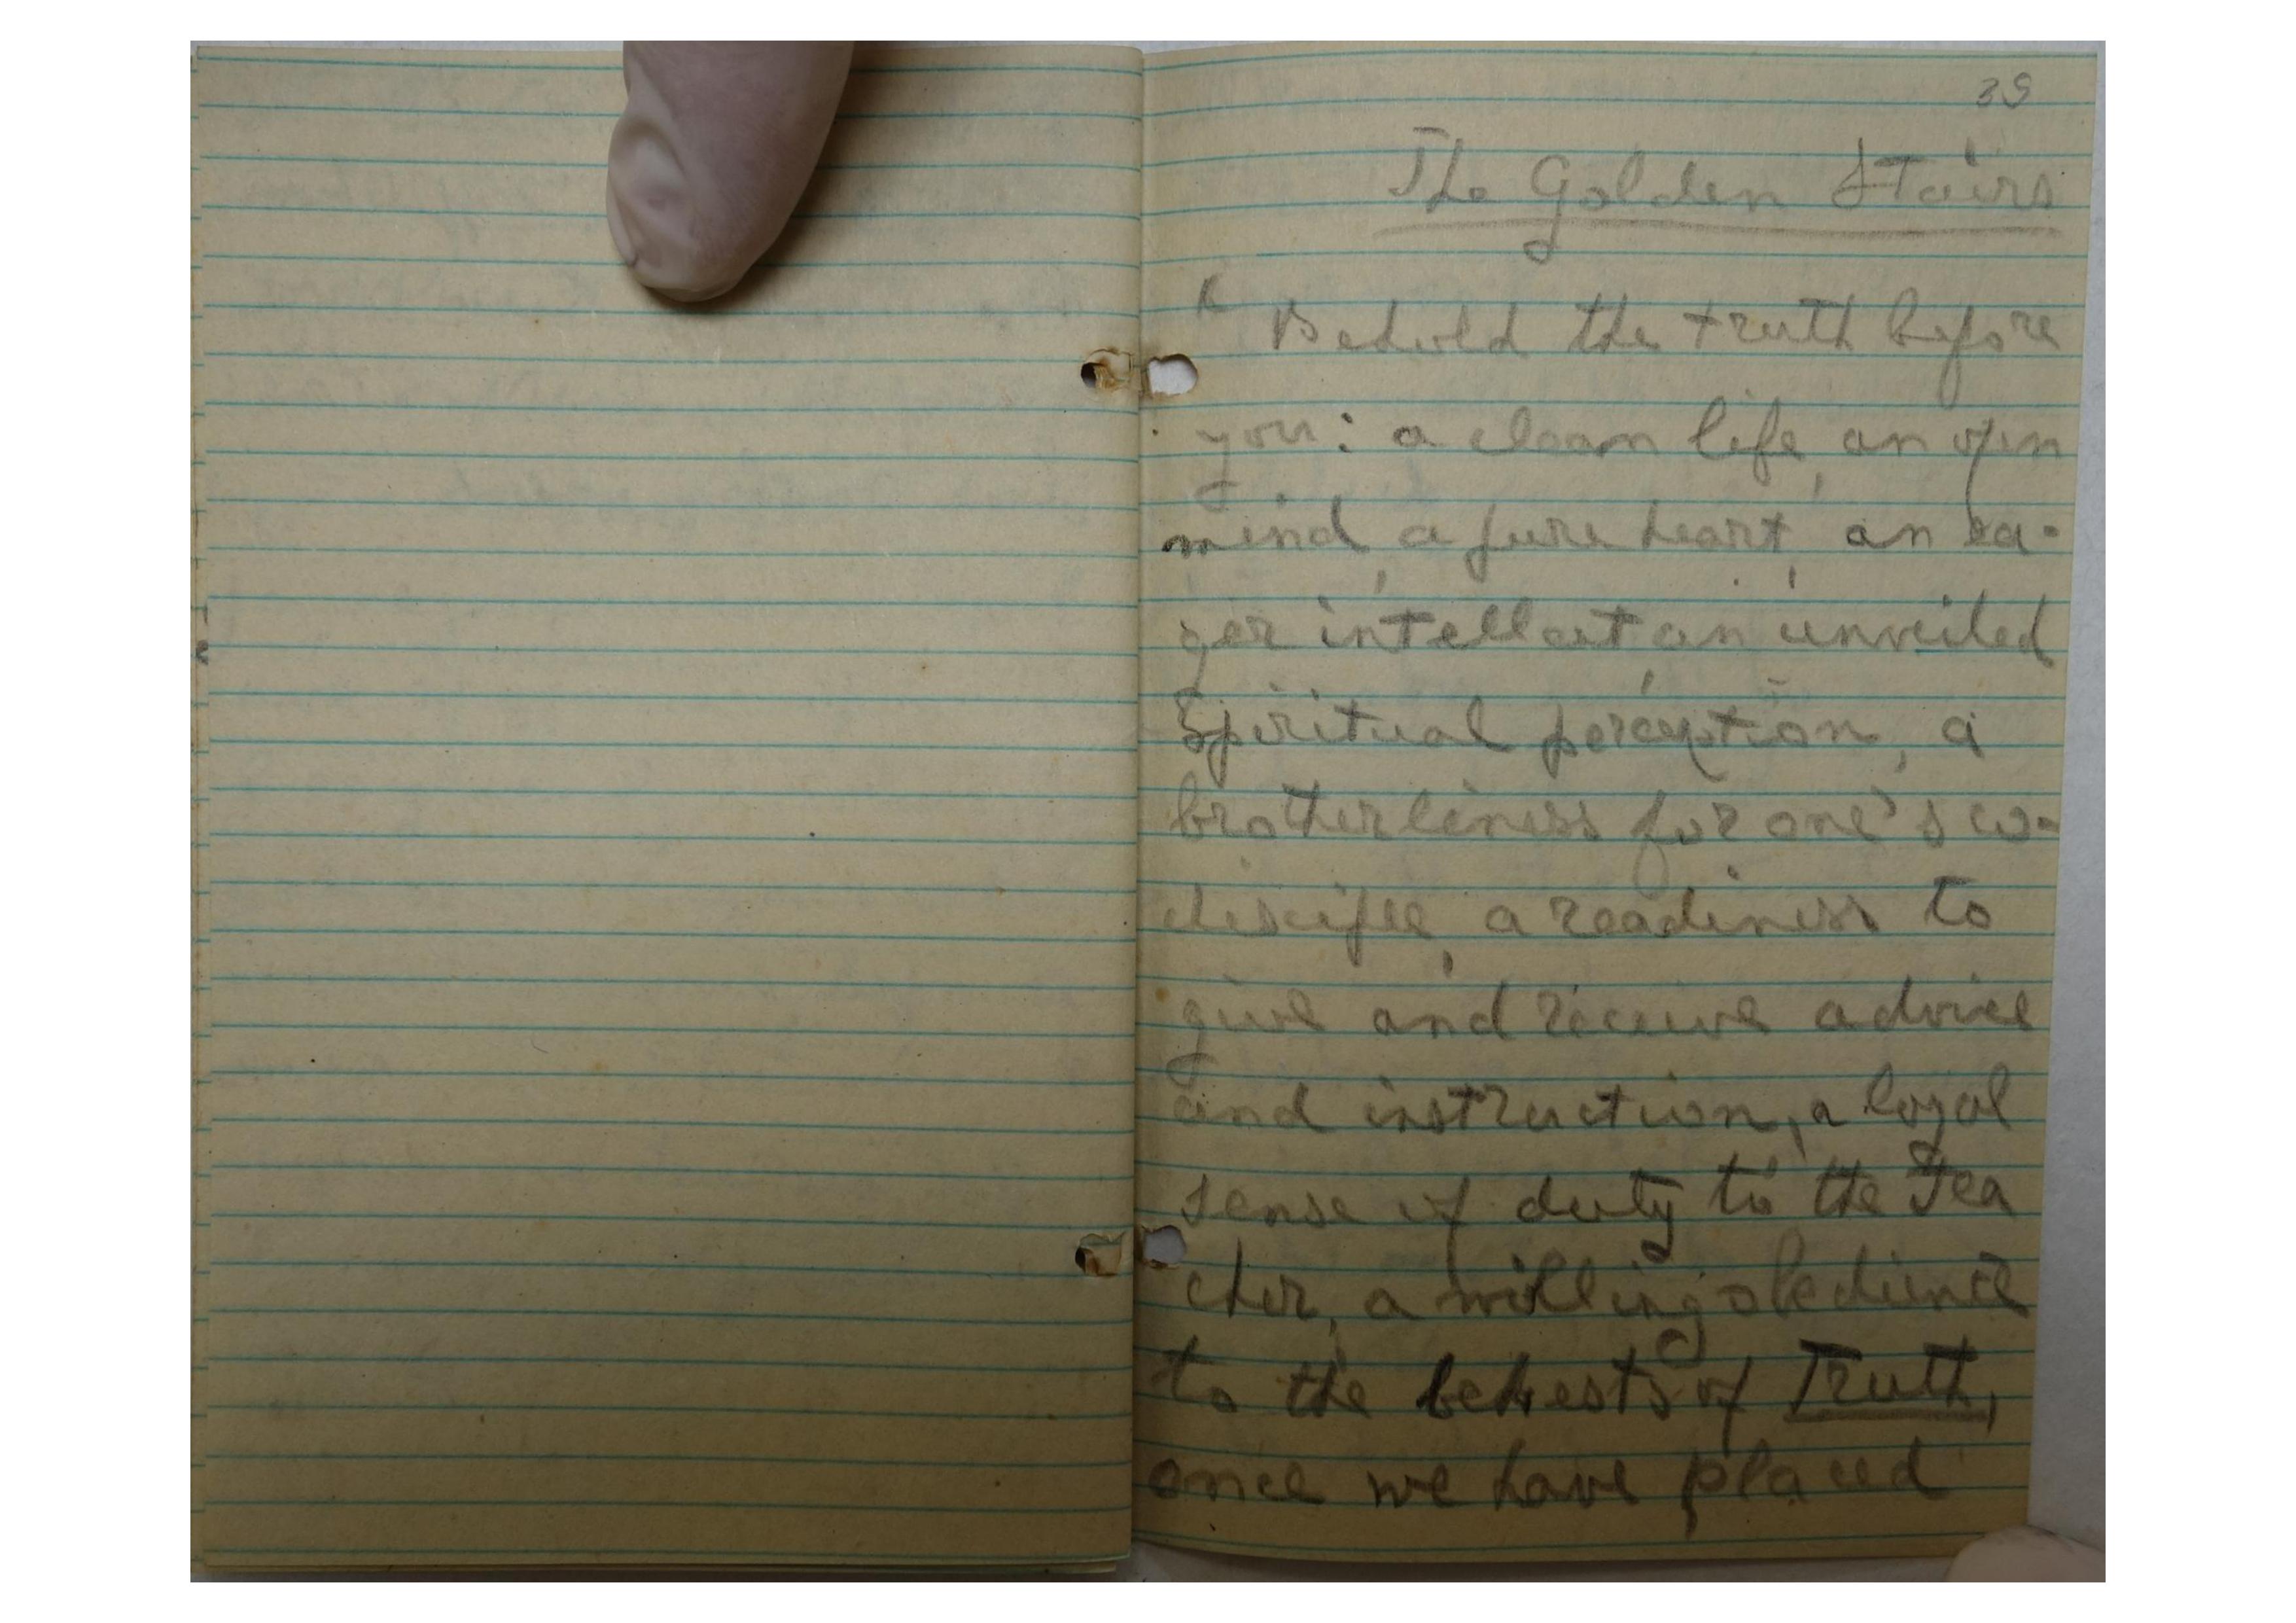 39
The Golden Stairs
" Behold the truth before
you: a clean life, an open
mind, a pure heart, an ea-
ger intellect, an unveiled
Spiritual perception, a
brotherliness for one's co-
disciple, a readiness to
give and receive advice
and instruction, a loyal
sense of duty to the Tea
cher, a willing obedience
to the behests of Truth,
once we have placed